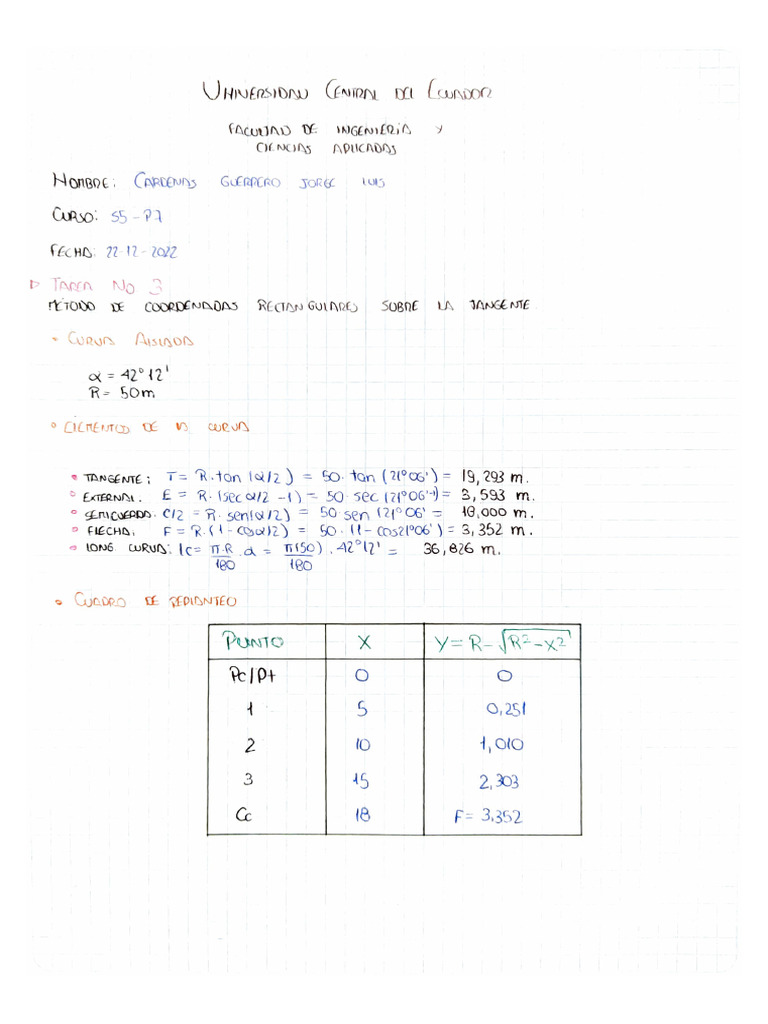 UNIVERSIDAD CENTRAL DEL ECUADOR
FACULTAD DE INGENIERÍA Y
CIENCIAS APLICADAS
NOMBRE: CARDENAS GUERRERO JORGE LUIS
CURSO: S5-P7
FECHA: 22-12-2022
TAREA No 3
MÉTODO DE COORDENADAS RECTANGULARES SOBRE LA TANGENTE
• CURVA AISLADA
α = 42°12'
R = 50m
• ELEMENTOS DE LA CURVA
• TANGENTE: T = R.tan(α/2) = 50.tan(21°06') = 19,293 m.
• EXTERNAL. E = R.(sec α/2 -1) = 50.sec(21°06'-1) = 3,593 m.
• SEMICUERDA. C/2 = R.sen(α/2) = 50.sen(21°06' = 18,000 m.
• FLECHA: F = R.(1-cosα/2) = 50.(1-cos21°06') = 3,352 m.
• LONG CURVA: lc = π.R/180 . α = π(50)/180 . 42°12' = 36,826 m.
• CUADRO DE REPLANTEO
PUNTO X Y = R-√R²-X²
Pc/Pt 0 0
1 5 0,251
2 10 1,010
3 15 2,303
Cc 18 F = 3.352